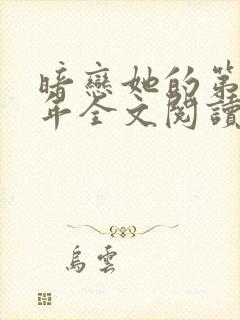 暗戀她的第
年全文閱讀
烏雲